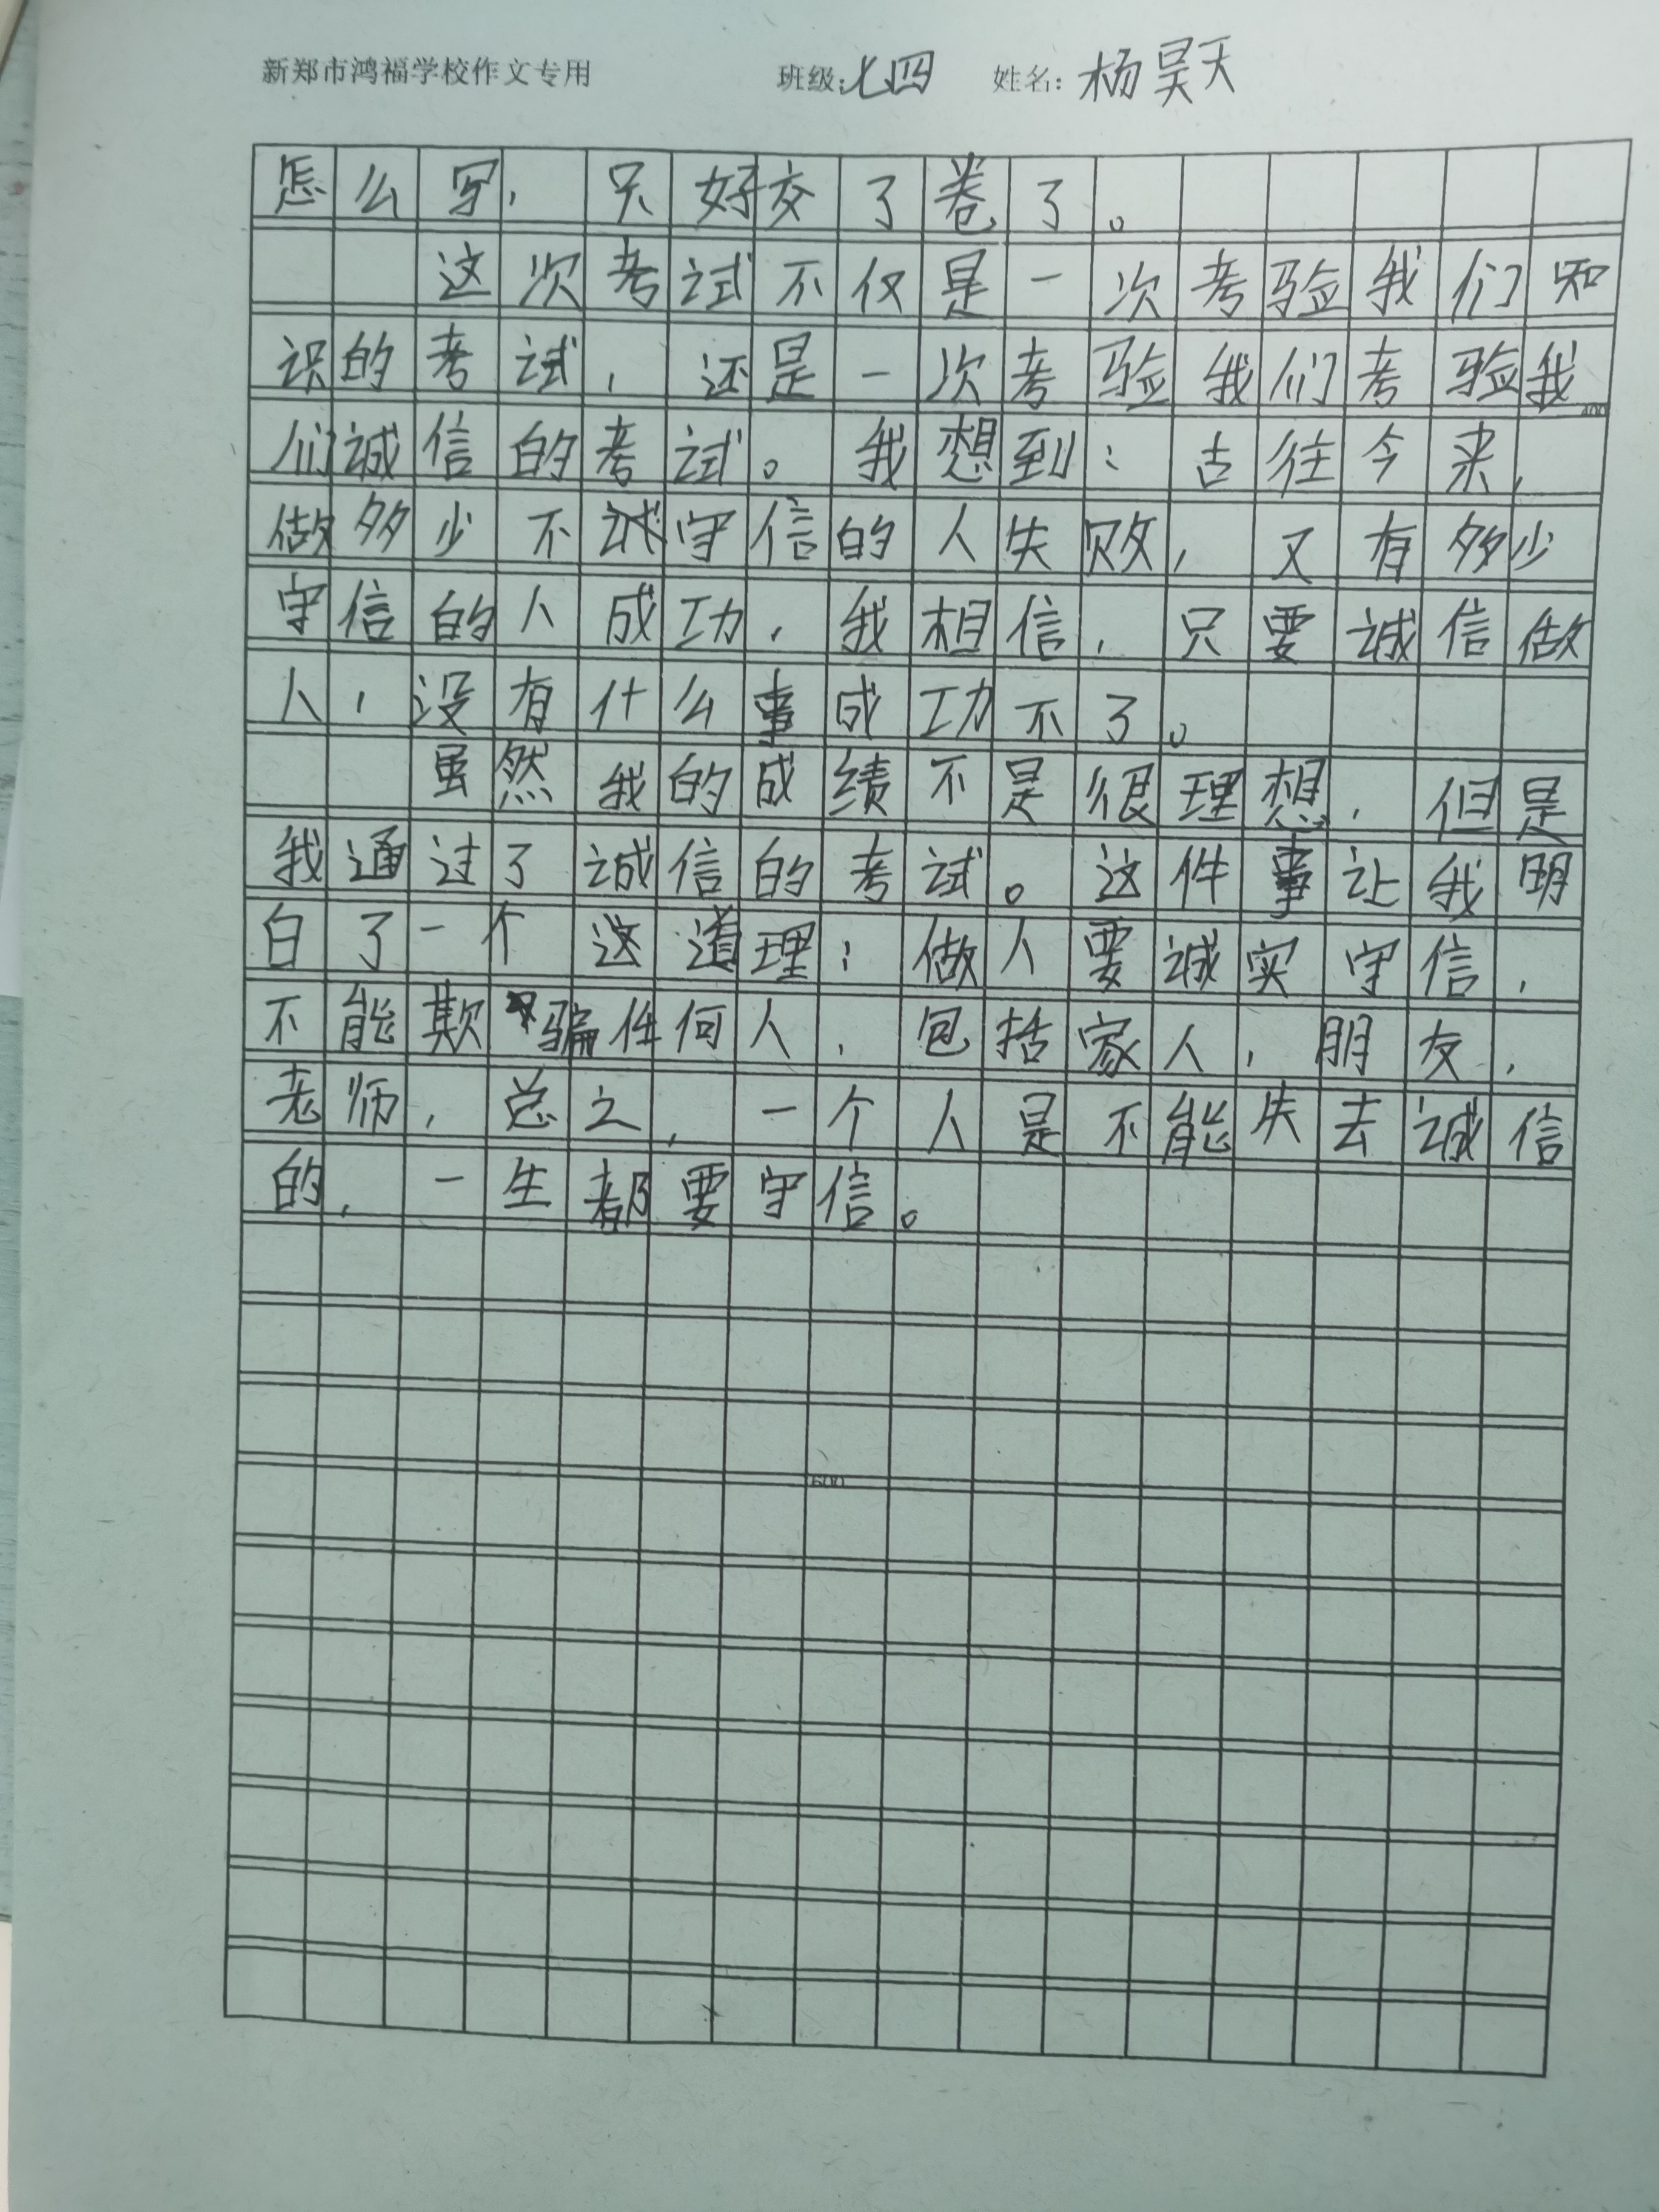 新郑市鸿福学校作文专用 班级:七四 姓名:杨昊天
怎么写，只好交了卷了。
这次考试不仅是一次考验我们知
识的考试，还是一次考验我们考验我
400
们诚信的考试。我想到：古往今来，
做多少不守信的人失败，又有多少
守信的人成功，我相信，只要诚信做
人，没有什么事成功不了。
虽然我的成绩不是很理想，但是
我通过了诚信的考试。这件事让我明
白了一个这道理：做人要诚实守信，
不能欺骗任何人，包括家人，朋友，
老师，总之，一个人是不能失去诚信
的，一生都要守信。
600